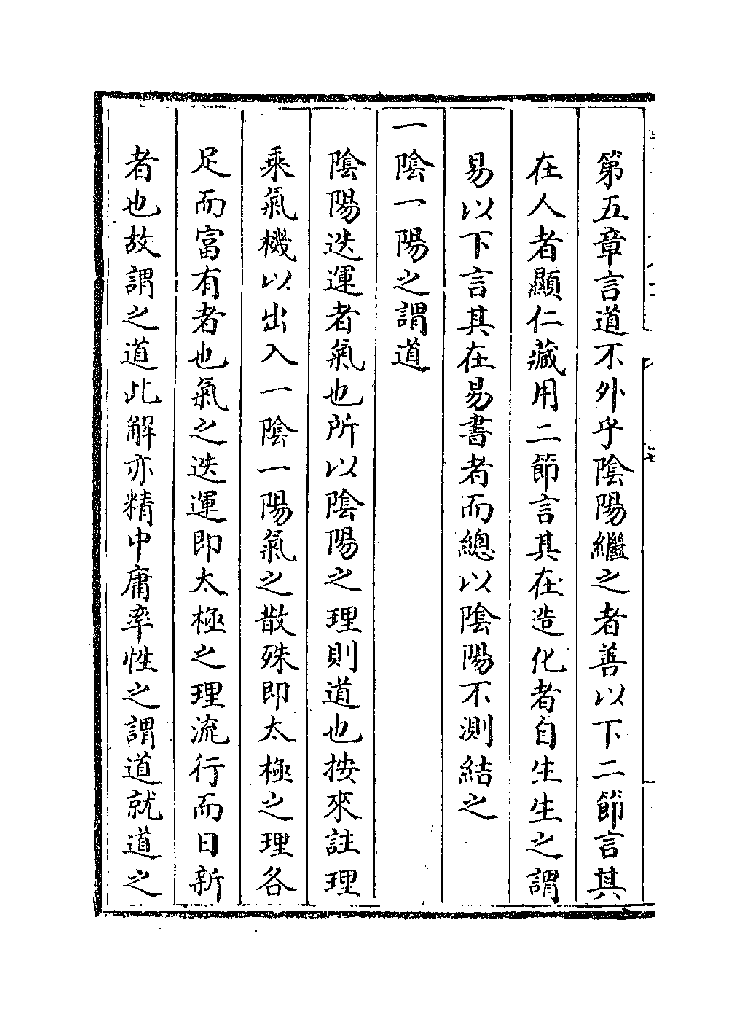 第五章言道不外乎陰陽繼之者善以下二節言其
在人者顯仁藏用二節言其在造化者自生生之謂
易以下言其在易書者而總以陰陽不測結之
一陰一陽之謂道
陰陽迭運者氣也所以陰陽之理則道也按來註理
乘氣機以出入一陰一陽氣之散殊即太極之理各
足而富有者也氣之迭運即太極之理流行而日新
者也故謂之道此解亦精中庸率性之謂道就道之